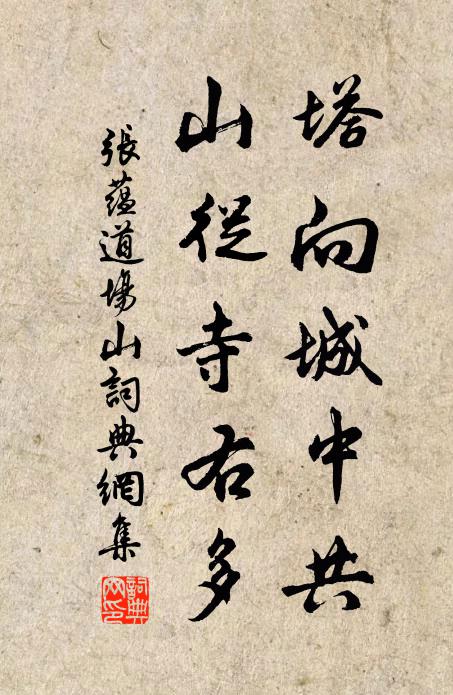 塔向城中共
山從寺右多
張蘊道場山詞典網集
詞典
网印